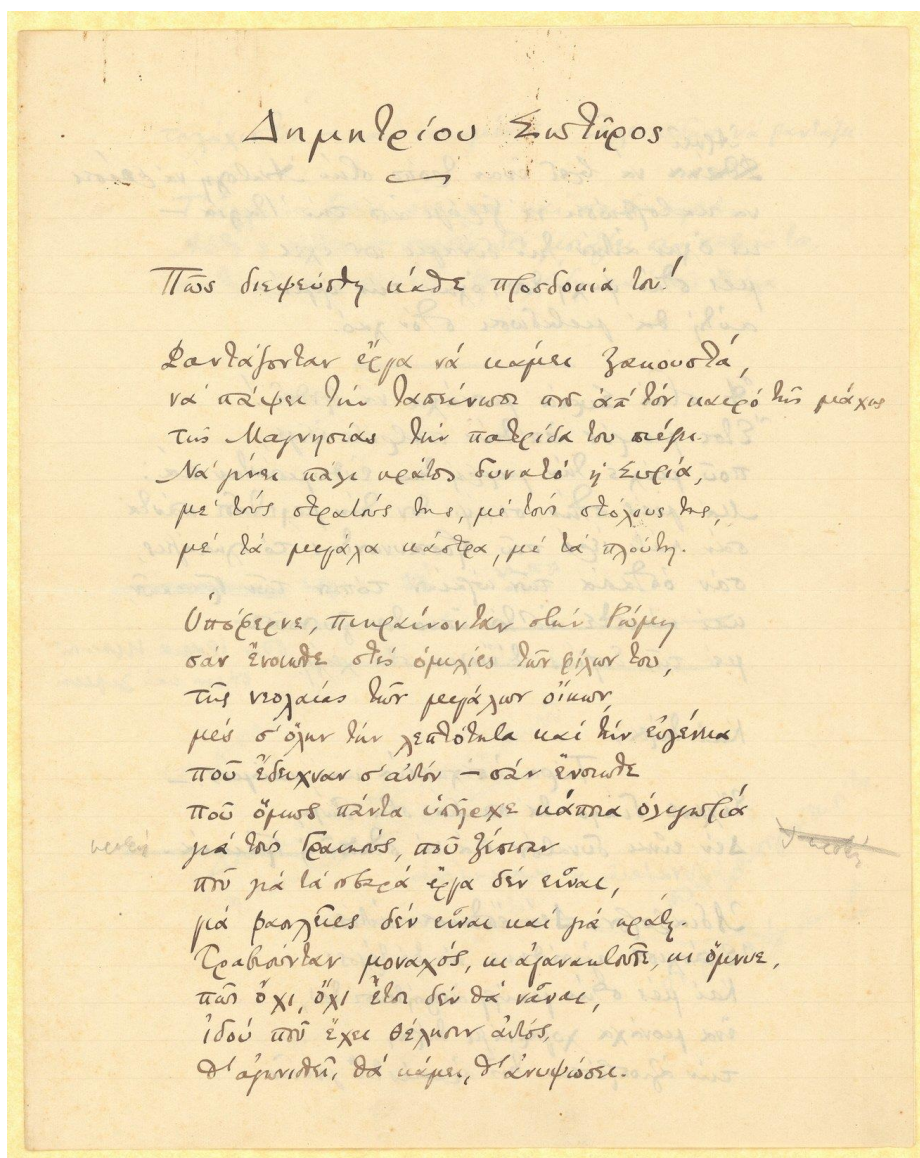 Δημητρίου Σωτῆρος
Πῶς διεψεύσθη κάθε προσδοκία του!
Φαντάζονταν ἔργα νά κάμει ξακουστά,
νά παύσει τήν ταπείνωσι ποῦ ἀπ' τόν καιρό τῆς μάχης
τῆς Μαγνησίας τήν πατρίδα του πιέζει.
Νά γίνει πάλι κράτος δυνατό ἡ Συρία,
μέ τούς στρατούς της, μέ τούς στόλους της,
μέ τά μεγάλα κάστρα, μέ τά πλούτη.
Ὑπόφερνε, πικραίνονταν στήν Ρώμη
σάν ἔνοιωθε στές ὁμιλίες τῶν φίλων του,
τῆς νεολαίας τῶν μεγάλων οἴκων,
μές σ' ὅλην τήν λεπτότητα καί τήν εὐγένεια
ποῦ ἔδειχναν σ' αὐτόν — σάν ἔνοιωθε
ποῦ ὅμως πάντα ὑπῆρχε κάποια ὀλιγωρία
γιά τούς Γραικούς, ποῦ ξέπεσαν
ποῦ γιά τά σοβαρά ἔργα δέν εἶναι,
γιά βασιλεῖες δέν εἶναι καί γιά κράτη.
Τραβιούνταν μοναχός, κι ἀγανακτοῦσε, κι ὄμνυε,
πῶς ὄχι, ὄχι ἔτσι δέν θά νἆναι,
ἰδού ποῦ ἔχει θέλησιν αὐτός,
θ' ἀγωνισθεῖ, θά κάμει, θ' ἀνυψώσει.